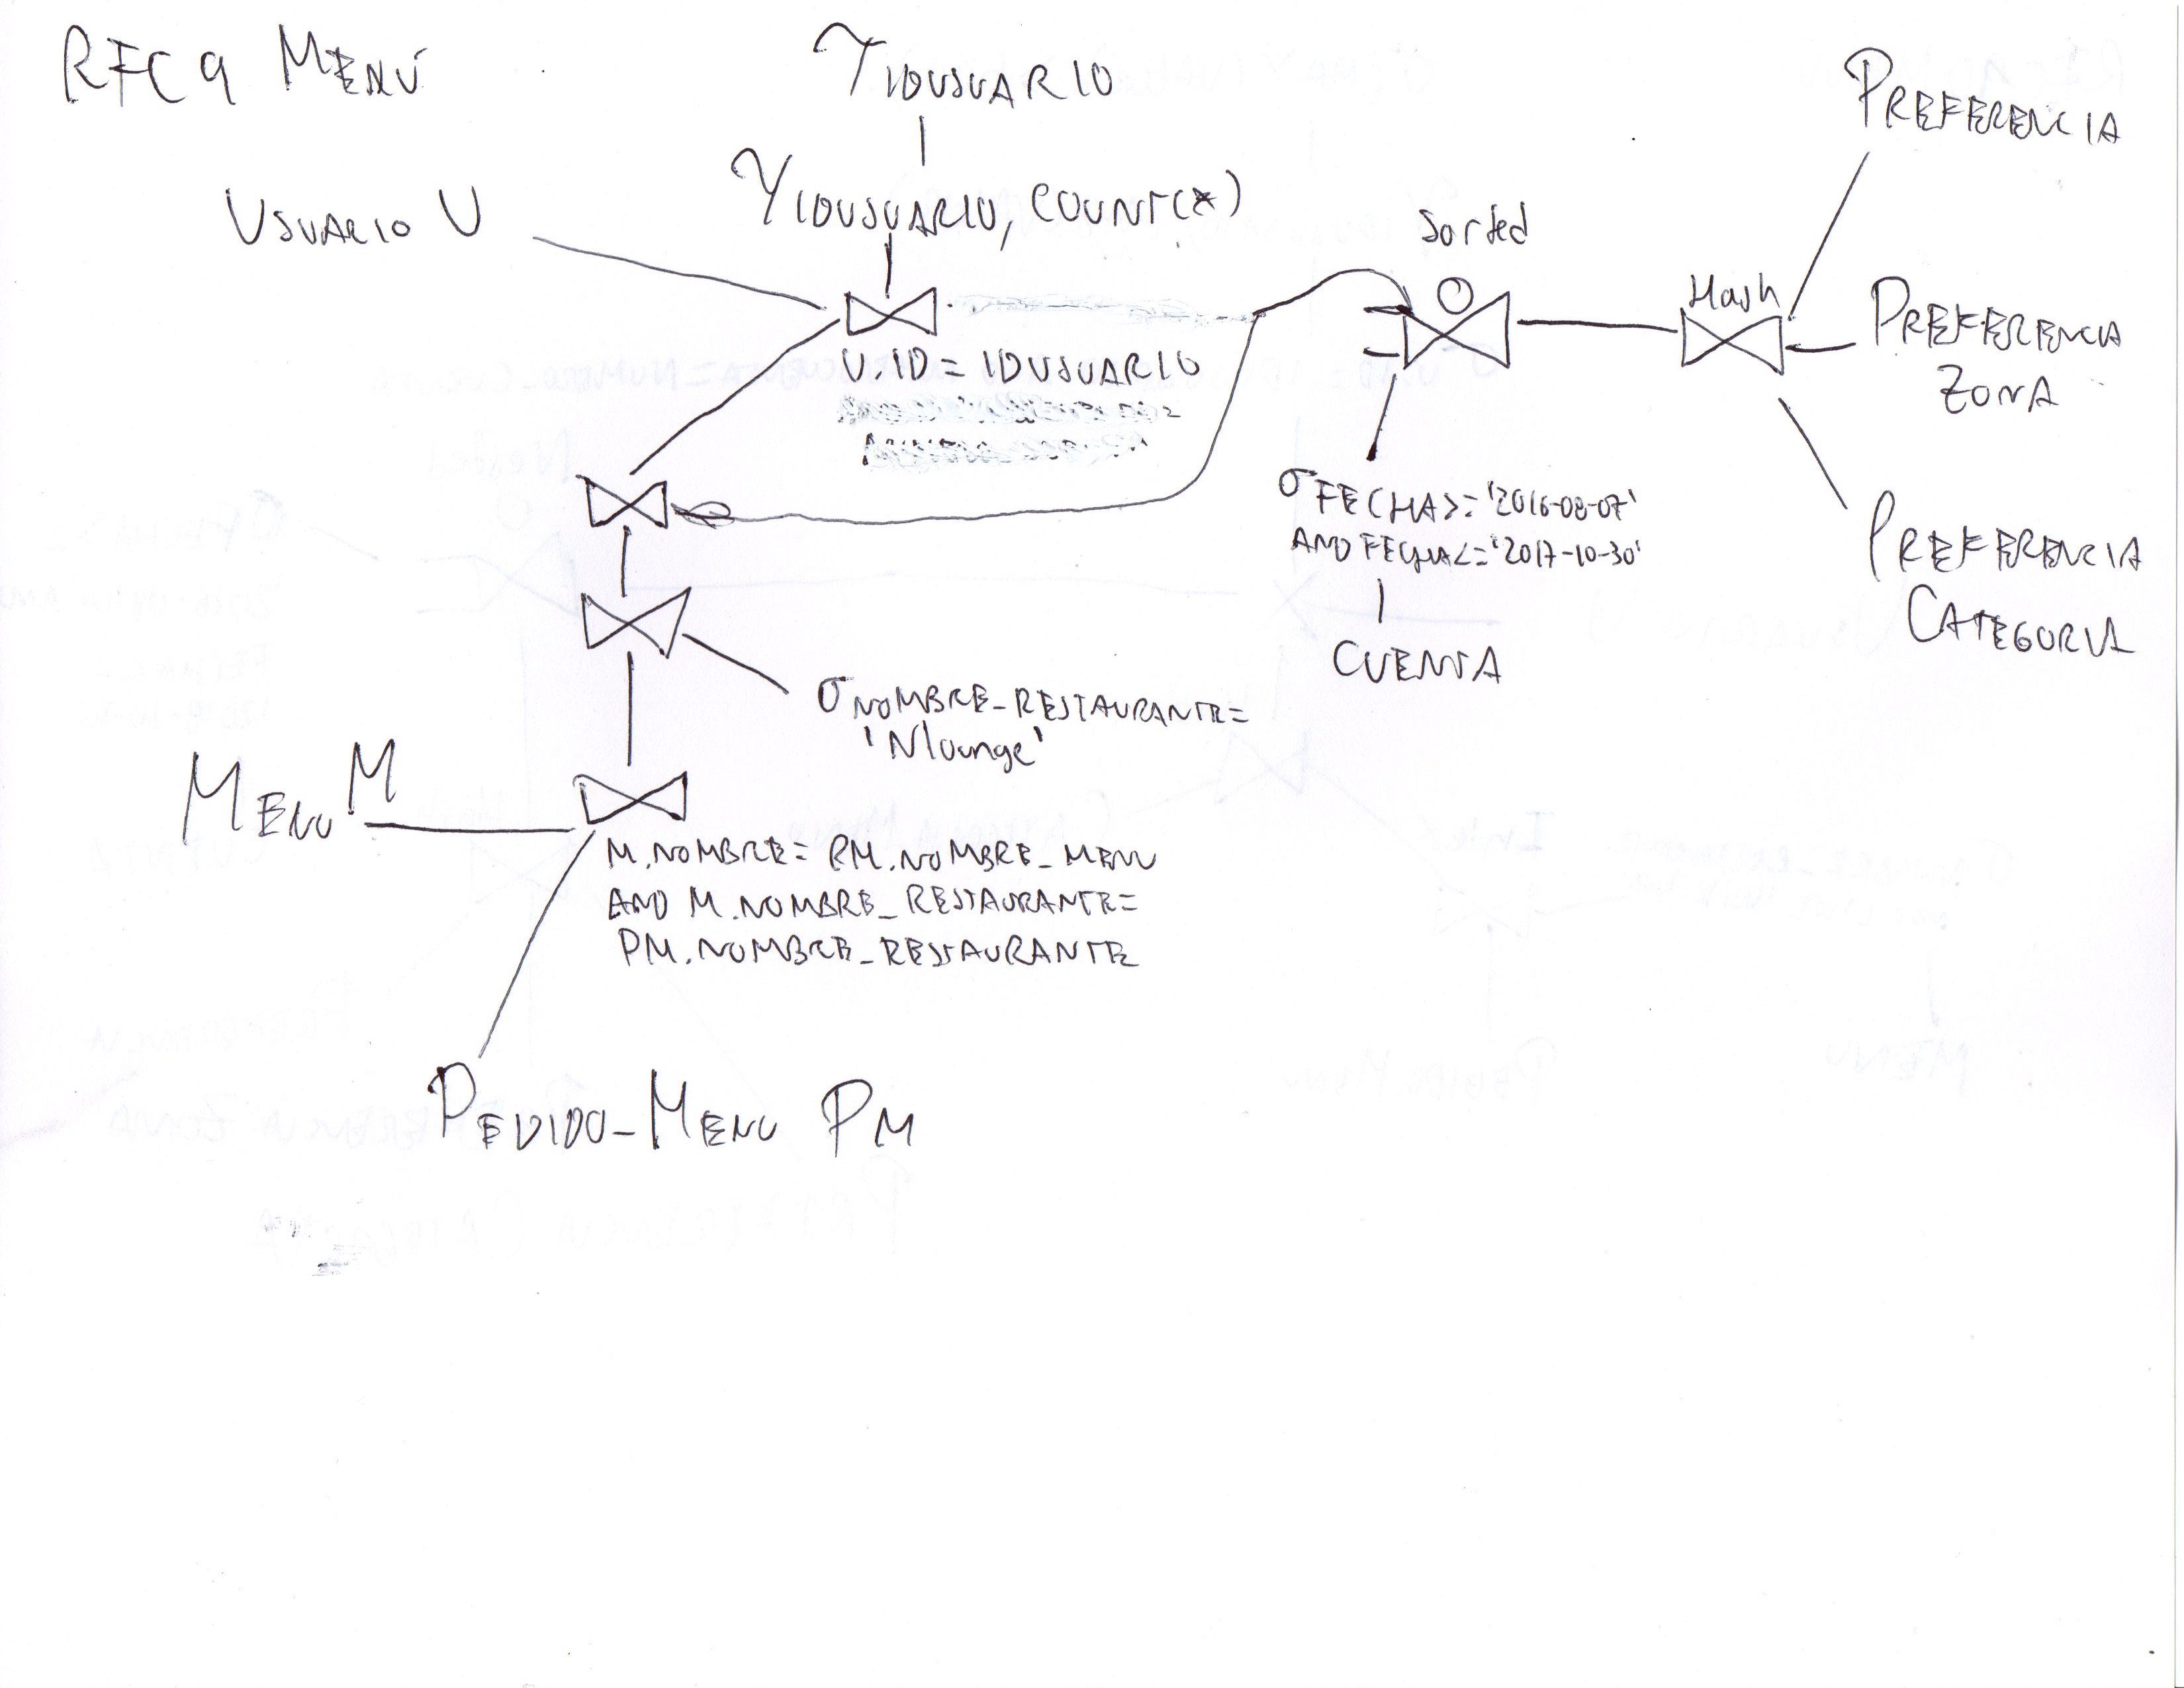 RFC 9 MENÚ
TIDUSUARIO
γIDUSUARIO, COUNT(*)
USUARIO U
U.ID = IDUSUARIO
Sorted
Hash
PREFERENCIA
PREFERENCIA
ZONA
PREFERENCIA
CATEGORIA
σ FECHA>='2016-08-07'
AND FECHA<='2017-10-30'
CUENTA
σ NOMBRE_RESTAURANTE=
'Nlounge'
MENU M
M.NOMBRE= PM.NOMBRE_MENU
AND M.NOMBRE_RESTAURANTE=
PM.NOMBRE_RESTAURANTE
PEDIDO_MENU PM